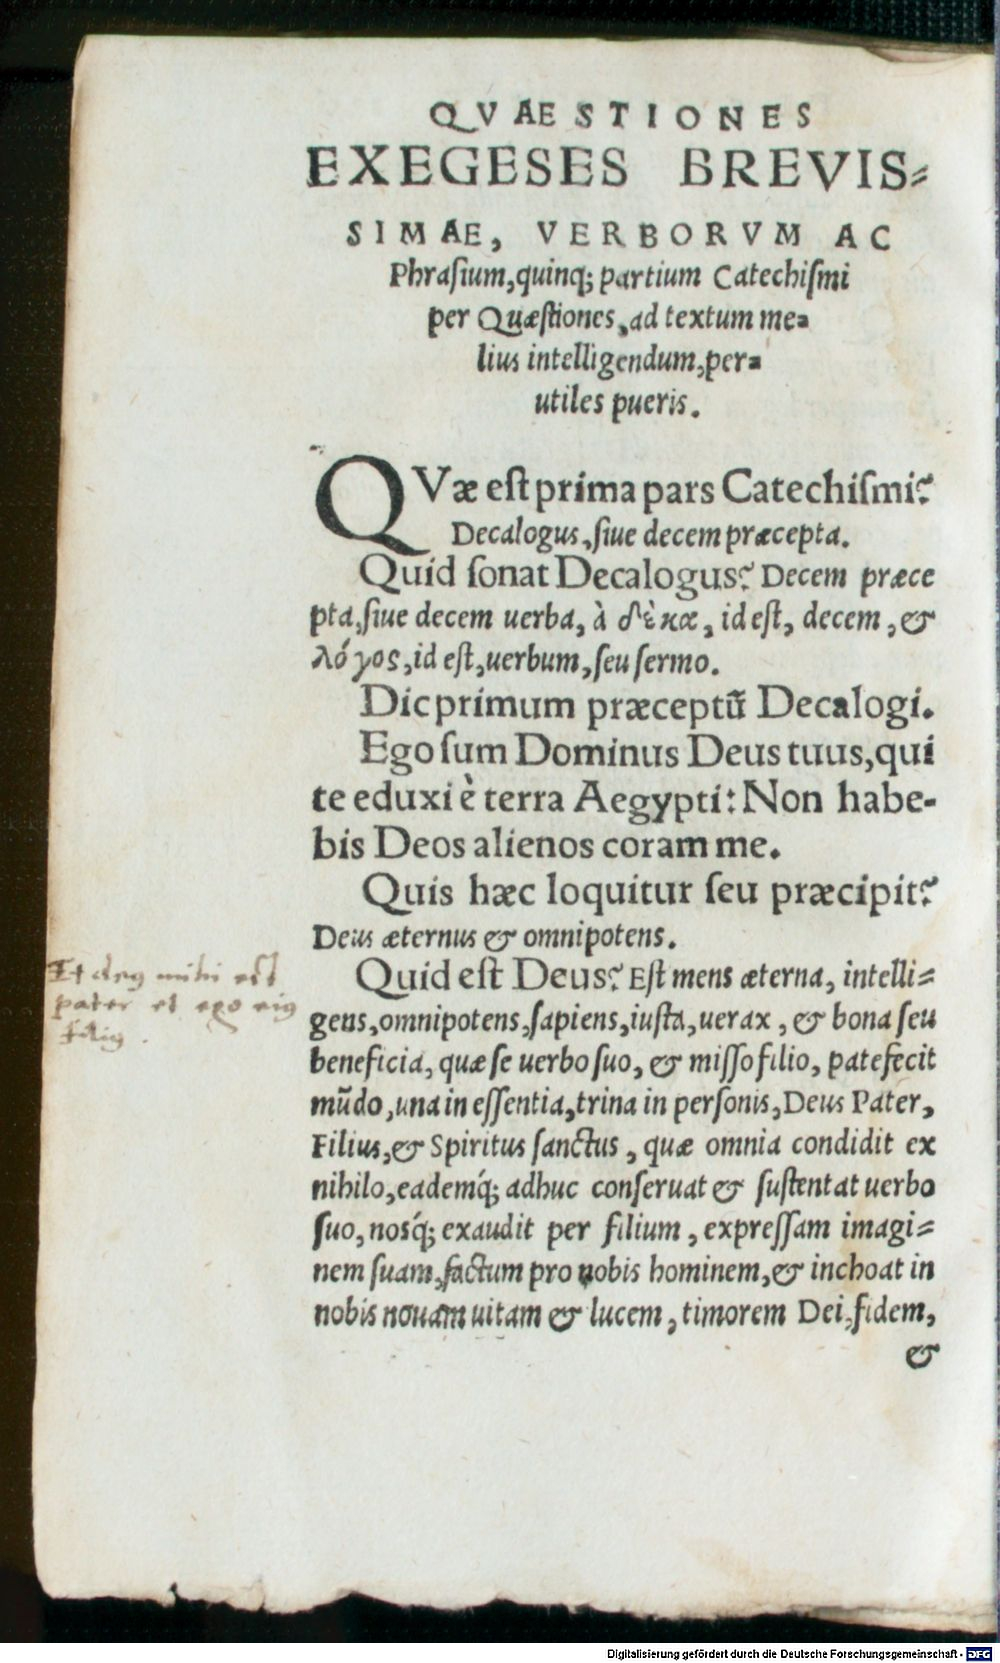 QVAESTIONES
EXEGESES BREVIS⸗
SIMAE, VERBORVM AC
Phraſium, quinq; partium Catechiſmi
per Quæſtiones, ad textum me⸗
lius intelligendum, per⸗
utiles pueris.
QVæ eſt prima pars Catechiſmi?
Decalogus, ſiue decem præcepta.
Quid ſonat Decalogus? Decem præce
pta, ſiue decem uerba, à δὲκα, id eſt, decem, &
λόγος, id eſt, uerbum, ſeu ſermo.
Dic primum præceptū Decalogi.
Ego ſum Dominus Deus tuus, qui
te eduxi è terra Aegypti: Non habe-
bis Deos alienos coram me.
Quis hæc loquitur ſeu præcipit?
Deus æternus & omnipotens.
Quid eſt Deus? Eſt mens æterna, intelli⸗
gens, omnipotens, ſapiens, iuſta, uerax, & bona ſeu
beneficia, quæ ſe uerbo ſuo, & miſſo filio, patefecit
mūdo, una in eſſentia, trina in perſonis, Deus Pater,
Filius, & Spiritus ſanctus, quæ omnia condidit ex
nihilo, eademq́; adhuc conſeruat & ſuſtentat uerbo
ſuo, nosq́; exaudit per filium, expreſſam imagi⸗
nem ſuam, factum pro nobis hominem, & inchoat in
nobis nouam uitam & lucem, timorem Dei, fidem,
&
Et deus mihi est
pater et ego eius
filius.
Digitalisierung gefördert durch die Deutsche Forschungsgemeinschaft - DFG